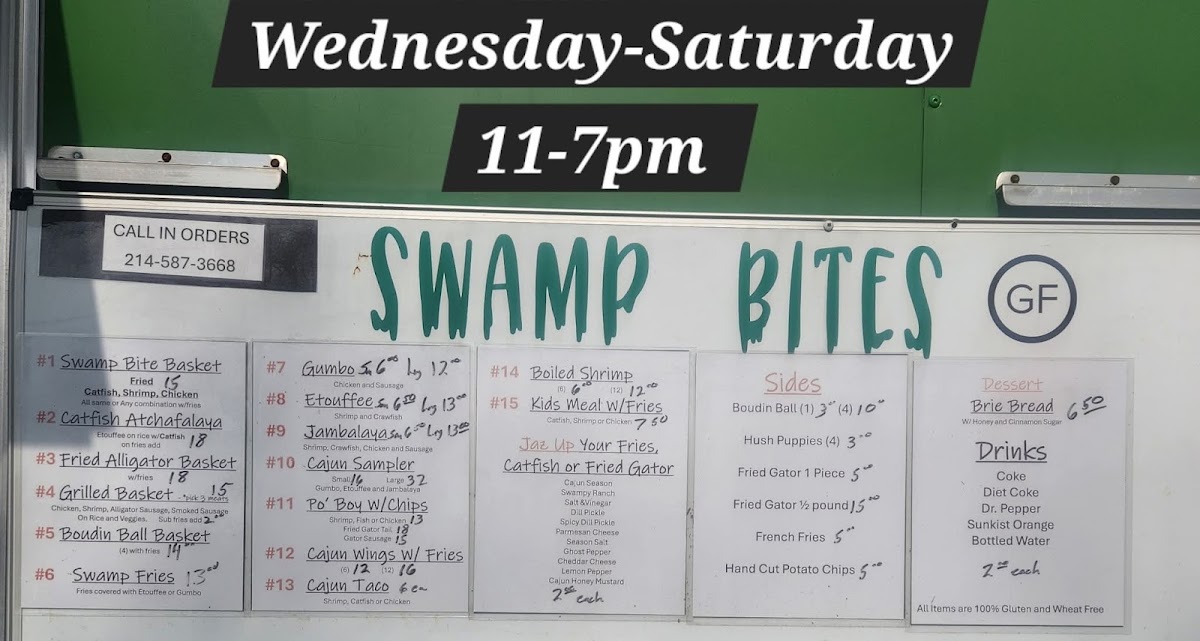 Wednesday-Saturday
11-7pm
CALL IN ORDERS
214-587-3668
SWAMP BITES
GF
#1 Swamp Bite Basket
Fried 15
Catfish, Shrimp, Chicken
All same or Any combination w/fries
#2 Catfish Atchafalaya
Etouffee on rice w/Catfish
on fries add 18
#3 Fried Alligator Basket
w/fries 18
#4 Grilled Basket 15
*pick 3 meats
Chicken, Shrimp, Alligator Sausage, Smoked Sausage
On Rice and Veggies. Sub fries add 2.00
#5 Boudin Ball Basket
(4) with fries 14.00
#6 Swamp Fries 13.00
Fries covered with Etouffee or Gumbo
#7 Gumbo Sm 6.00 Lrg 12.00
Chicken and Sausage
#8 Etouffee Sm 6.50 Lrg 13.00
Shrimp and Crawfish
#9 Jambalaya Sm 6.50 Lrg 13.00
Shrimp, Crawfish, Chicken and Sausage
#10 Cajun Sampler
Small 16 Large 32
Gumbo, Etouffee and Jambalaya
#11 Po' Boy W/Chips
Shrimp, Fish or Chicken 13
Fried Gator Tail 18
Gator Sausage 15
#12 Cajun Wings W/ Fries
(6) 12 (12) 16
#13 Cajun Taco 6 ea
Shrimp, Catfish or Chicken
#14 Boiled Shrimp
(6) 6.00 (12) 12.00
#15 Kids Meal W/Fries
Catfish, Shrimp or Chicken 7.50
Jaz Up Your Fries,
Catfish or Fried Gator
Cajun Season
Swampy Ranch
Salt &Vinegar
Dill Pickle
Spicy Dill Pickle
Parmesan Cheese
Season Salt
Ghost Pepper
Cheddar Cheese
Lemon Pepper
Cajun Honey Mustard
2.00 each
Sides
Boudin Ball (1) 3.00 (4) 10.00
Hush Puppies (4) 3.00
Fried Gator 1 Piece 5.00
Fried Gator ½ pound 15.00
French Fries 5.00
Hand Cut Potato Chips 5.00
Dessert
Brie Bread 6.50
W/ Honey and Cinnamon Sugar
Drinks
Coke
Diet Coke
Dr. Pepper
Sunkist Orange
Bottled Water
2.00 each
All Items are 100% Gluten and Wheat Free